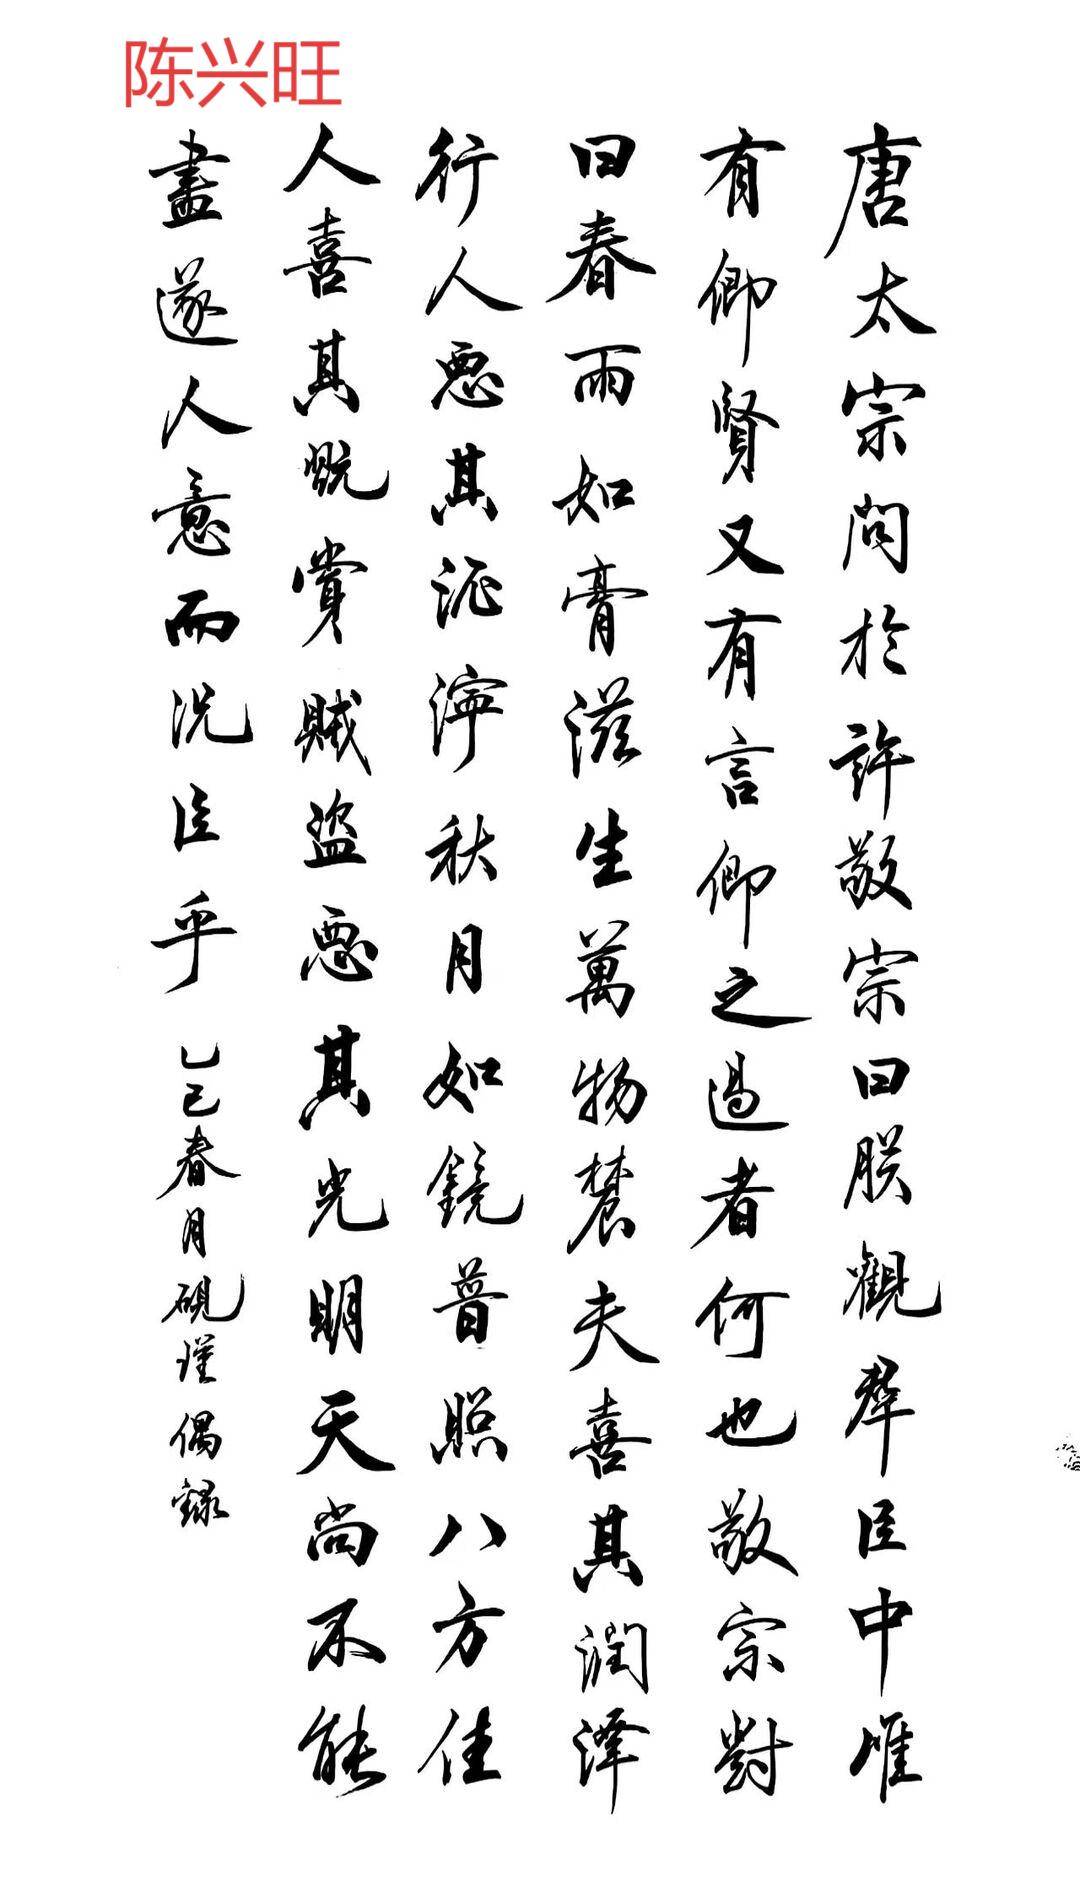 陈兴旺
唐太宗问於許敬宗曰朕觀羣臣中唯
有卿賢又有言卿之過者何也敬宗對
曰春雨如膏滋生萬物農夫喜其潤澤
行人惡其泥濘秋月如鏡普照八方佳
人喜其翫賞賊盗惡其光明天尚不能
盡遂人意而况臣乎
乙巳春月硯瑾偶録